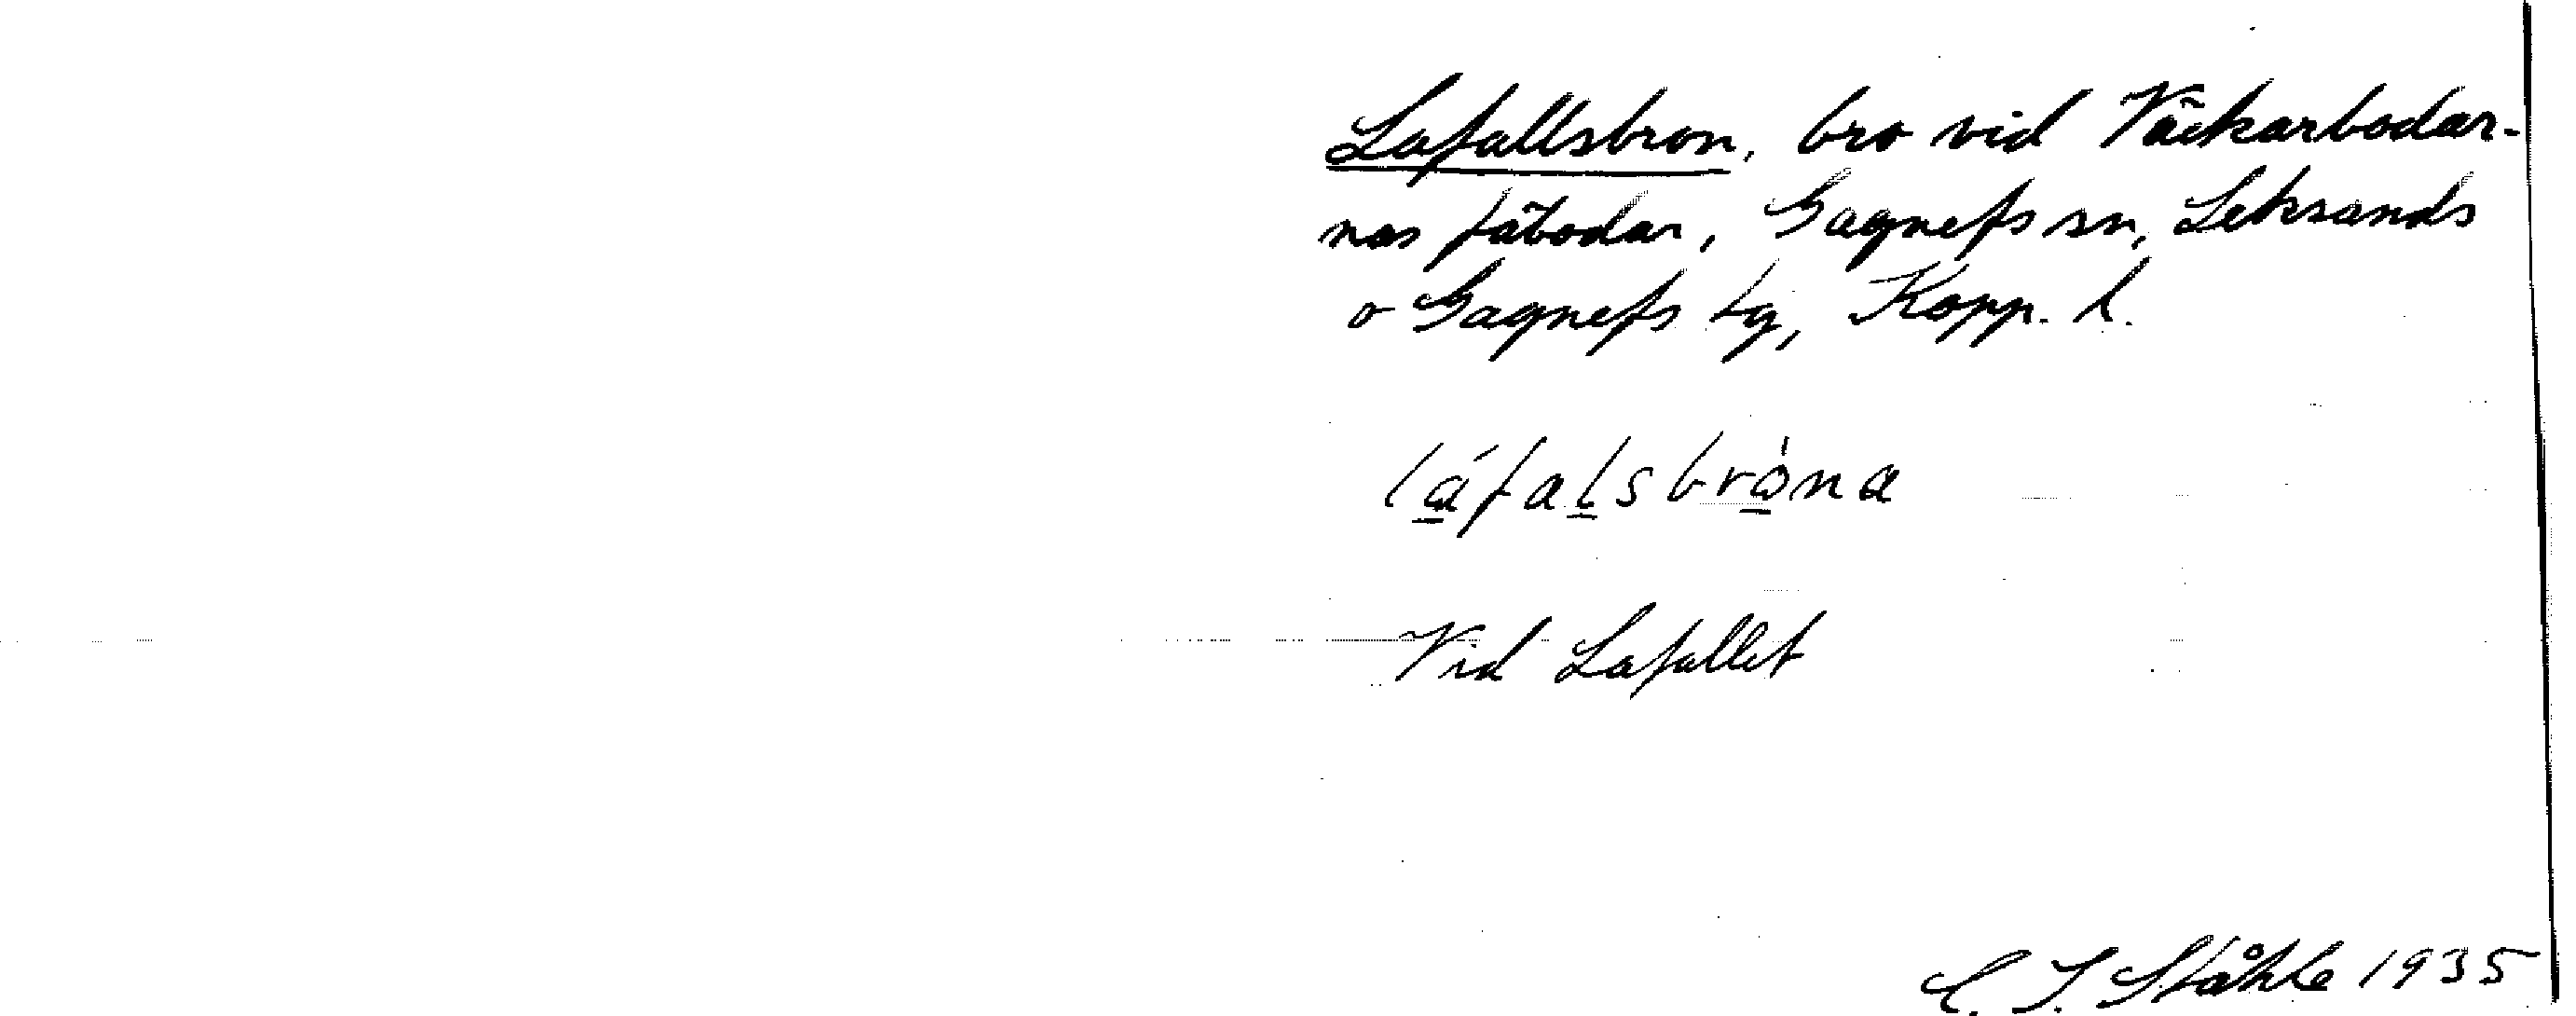 Lafallsbron, bro vid Väckarbodar-
nas fäbodar, Gagnefs sn, Leksands
o Gagnefs tg, Kopp. l.
láfalsbròna
Vid Lafallet
C. I. Ståhle 1935